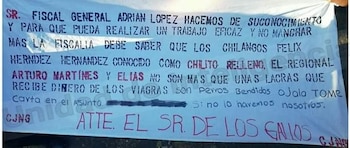 SR. FISCAL GENERAL ADRIAN LOPEZ HACEMOS DE SU CONOCIMIENTO
Y PARA QUE PUEDA REALIZAR UN TRABAJO EFICAZ Y NO MANCHAR
MAS LA FISCALIA DEBE SABER QUE LOS CHILANGOS FELIX
HERNDEZ HERNANDEZ CONOCIDO COMO CHLITO RELLENO, EL REGIONAL
ARTURO MARTINES Y ELIAS NO SON MAS QUE UNAS LACRAS QUE
RECIBE DINERO DE LOS VIAGRAS SON PERROS BENDIDOS OJALA TOME
CARTA EN EL ASUNTO SI NO LO HAREMOS NOSOTROS.
CJNG ATTE. EL SR. DE LOS GALLOS CJNG